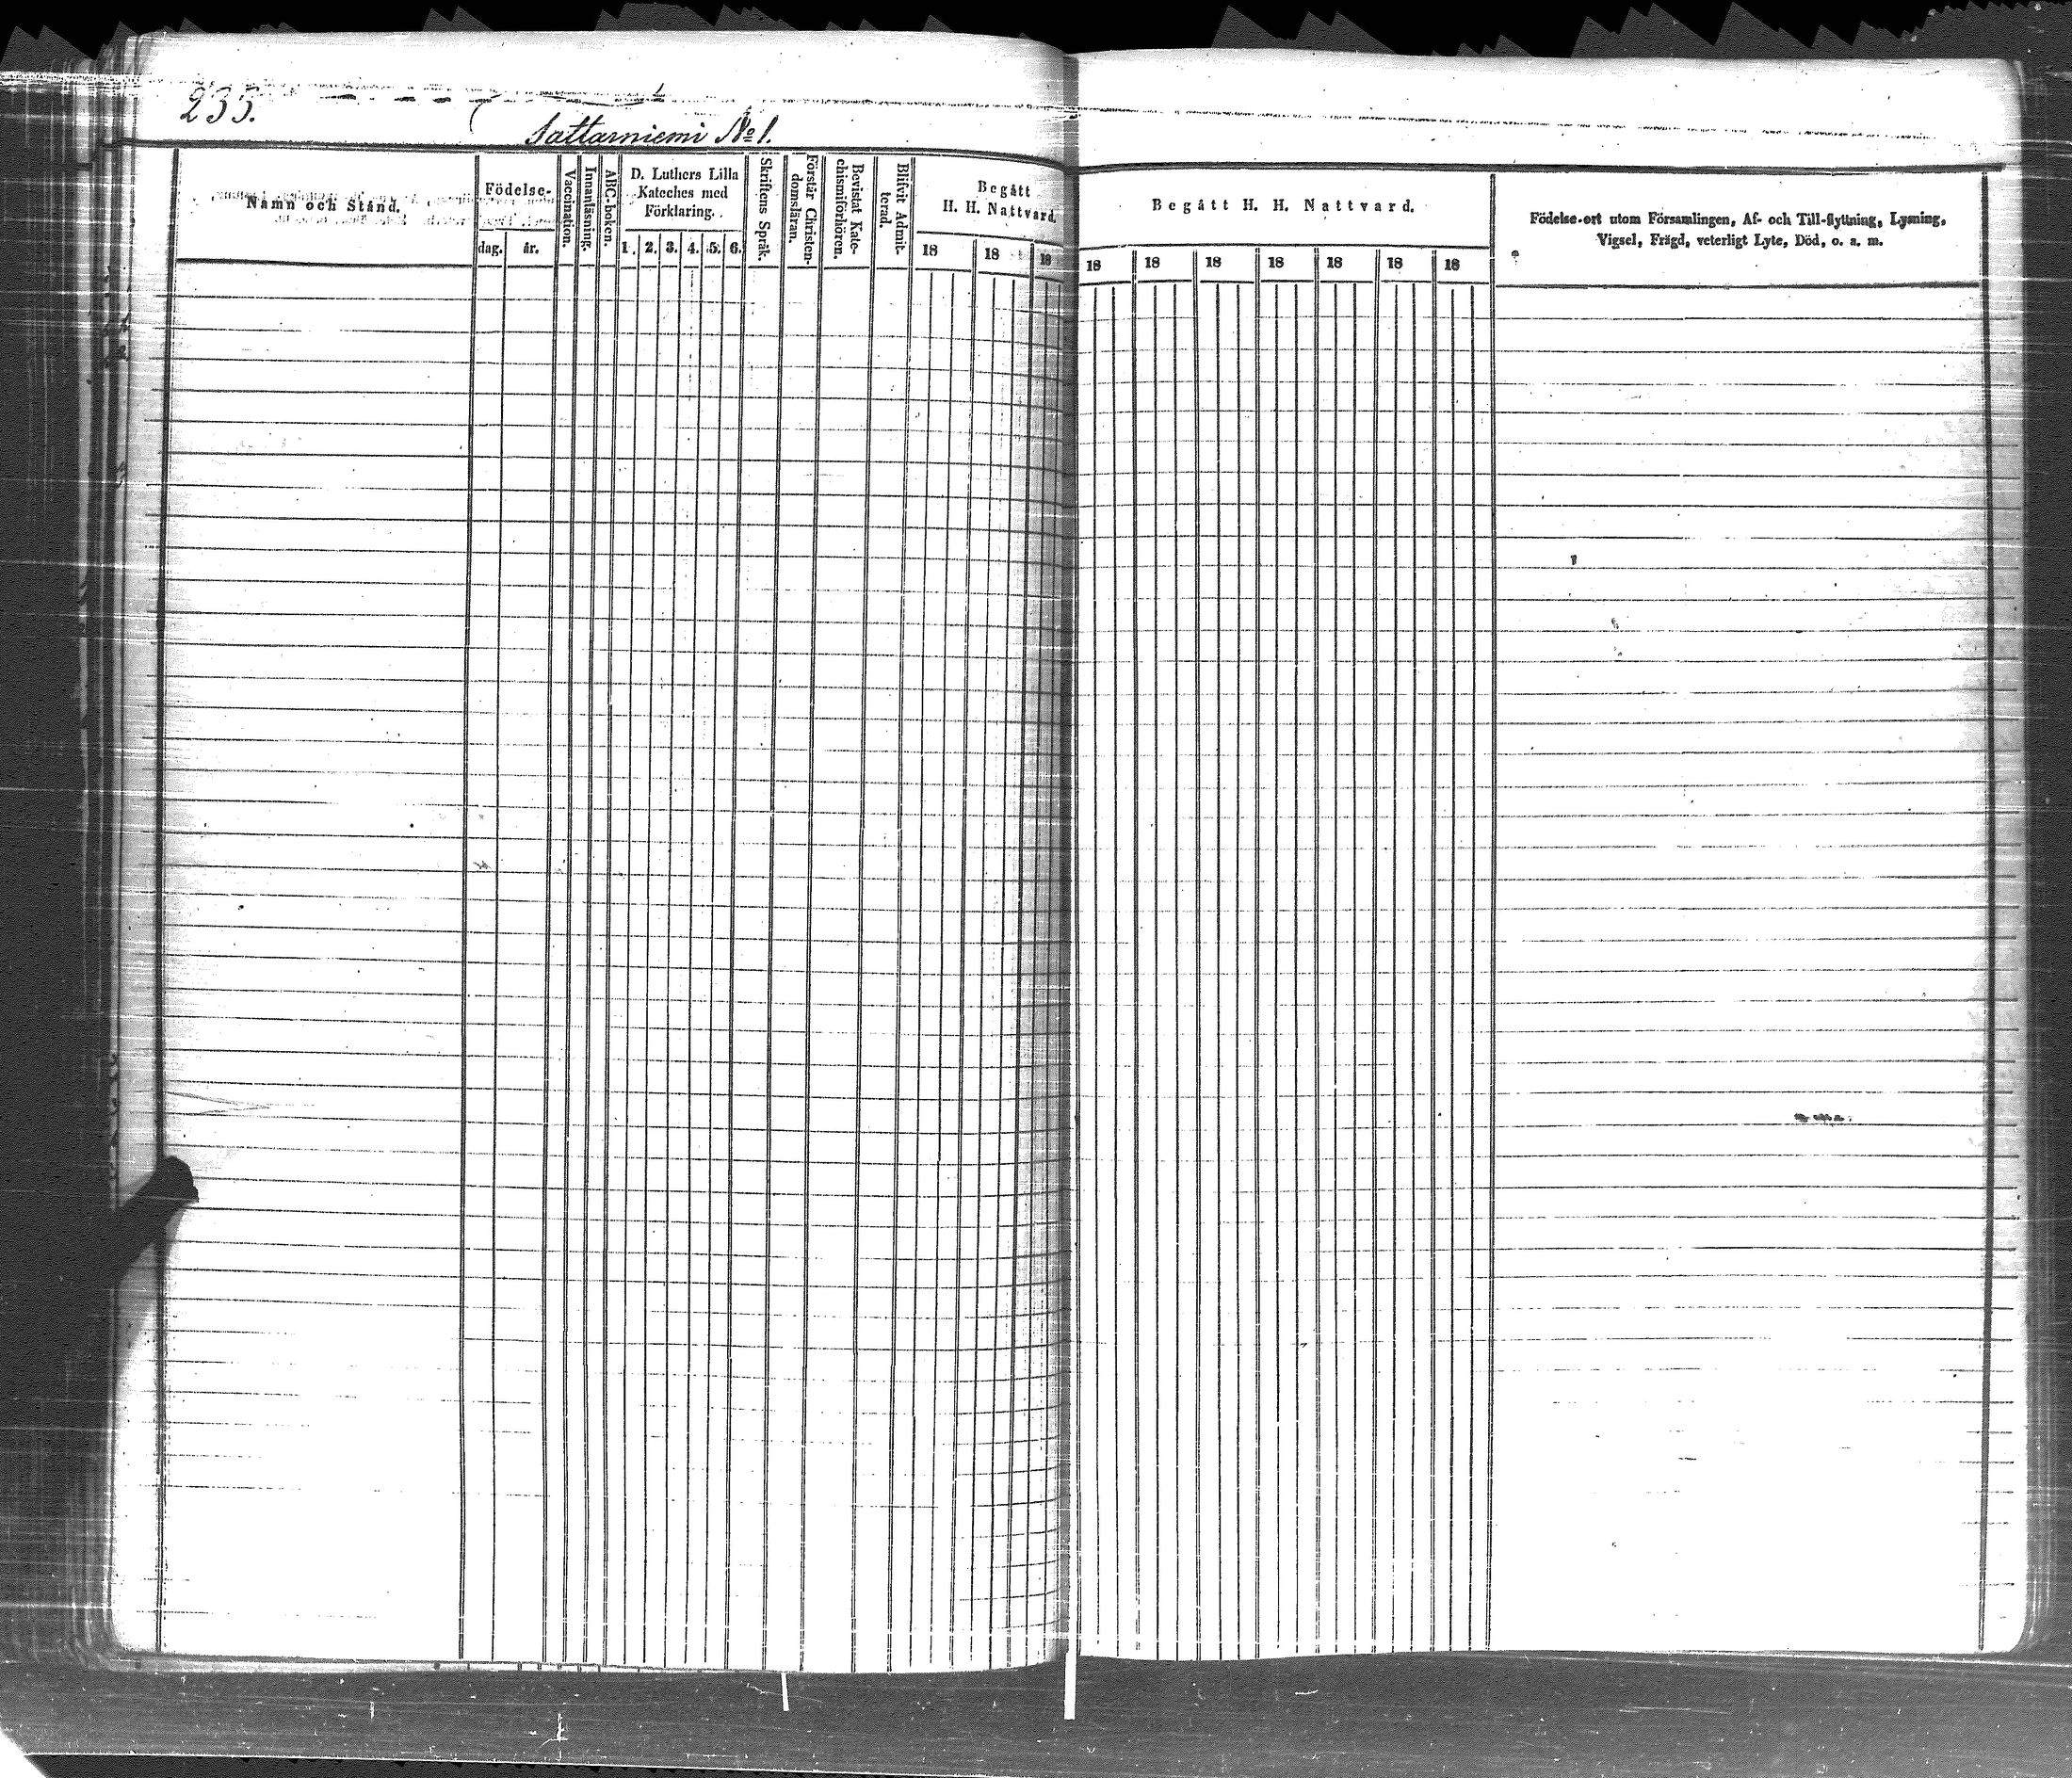 235.
Sattarniemi No 1.
Namn och Stånd.
Födelse-
dag.
år.
Vaccination.
Innanläsning.
ABC-boken.
D. Luthers Lilla
Kateches med
Förklaring.
1. 2. 3. 4. 5. 6.
Skriftens Språk.
Förstår Christen-
domsläran.
Bevistat Kate-
chismiförhören.
Blifvit Admit-
terad.
Begått
H. H. Nattvard.
18 18 18
Begått H. H. Nattvard.
18 18 18 18 18 18 18
Födelse-ort utom Församlingen, Af- och Till-flyttning, Lysning,
Vigsel, Frägd, veterligt Lyte, Död, o. a. m.